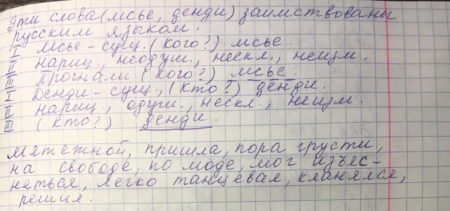 Эти слова (мсье, денди) заимствованы
русским языком.
I Мсье - сущ. (кого?) мсье.
II нариц., неодуш., нескл., неизм.
III Прогнали (кого?) мсье
I Денди - сущ., (кто?) денди.
II нариц., одуш., нескл., неизм.
III (кто?) денди.
Мятежной, пришла, пора грусти,
на свободе, по моде, мог изъяс-
няться, легко танцевал, кланялся,
решил.